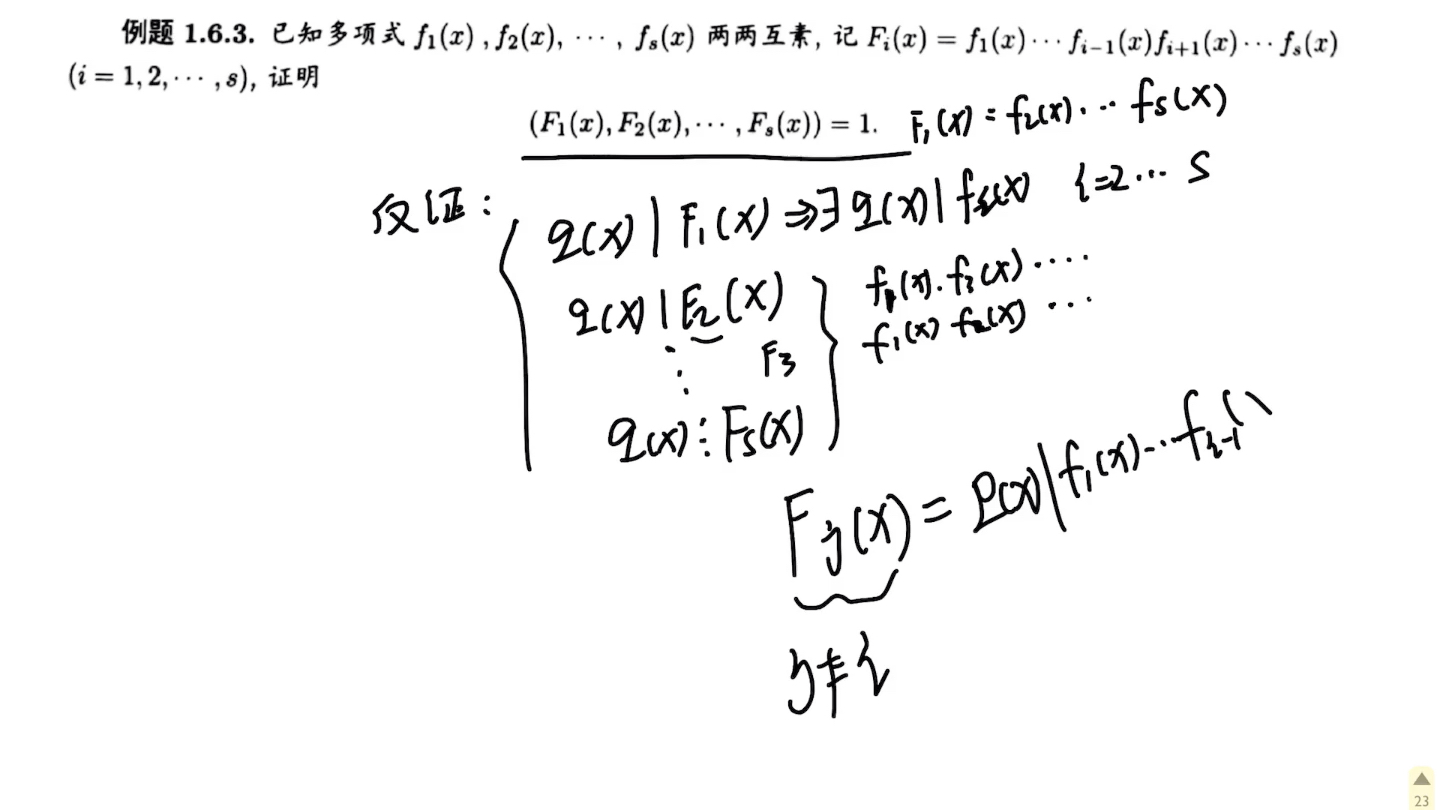 例题 1.6.3. 已知多项式 f₁(x) , f₂(x), ⋯ , fₛ(x) 两两互素, 记 Fᵢ(x) = f₁(x)⋯fᵢ₋₁(x)fᵢ₊₁(x)⋯fₛ(x)
(i = 1, 2, ⋯ , s), 证明
(F₁(x), F₂(x), ⋯ , Fₛ(x)) = 1.
F₁(x) = f₂(x)⋯fₛ(x)
反证:
q(x) | F₁(x) ⇒ ∃ q(x) | fᵢ(x) i=2⋯s
q(x) | F₂(x)
f₁(x)·f₃(x)⋯⋯
⋮ F₃
f₁(x) f₂(x) ⋯
q(x) ⋮ Fₛ(x)
Fⱼ(x) = p(x) | f₁(x)⋯fᵢ₋₁(
j≠i
23